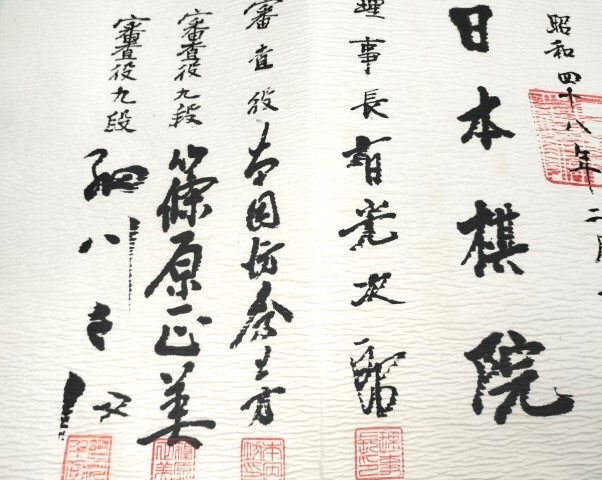 昭和四十八年二月
日本棋院
理事長 有光次郎
審査役 本因坊
審査役九段 篠原正美
審査役九段 細川千仭